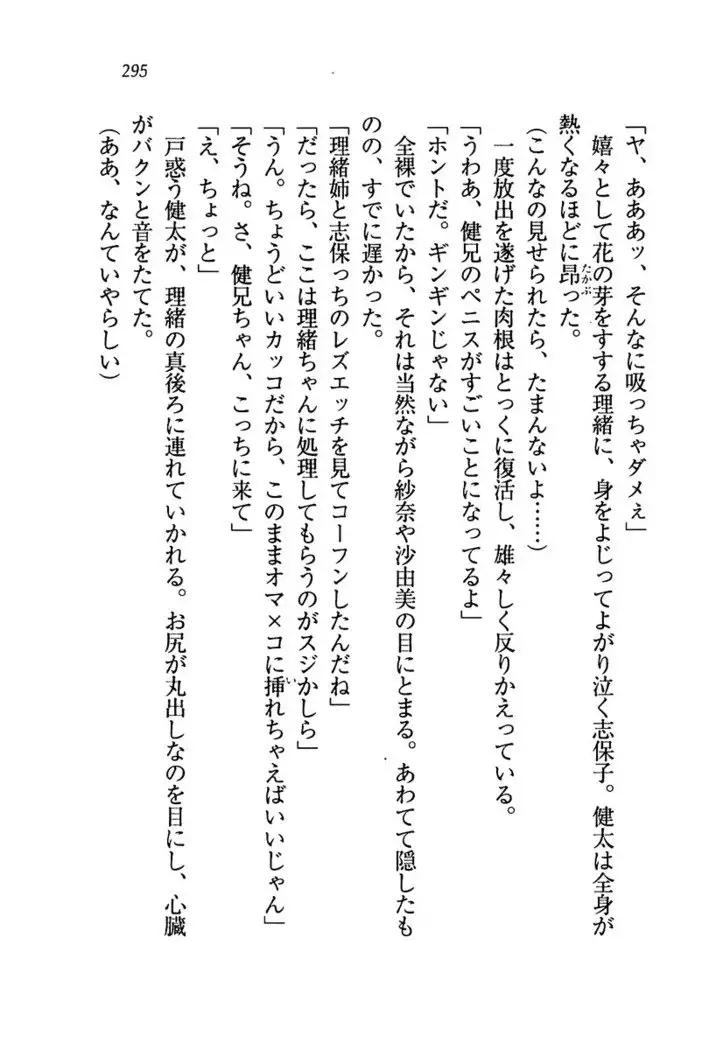 295
「ヤ、あああッ、そんなに吸っちゃダメぇ」
嬉々として花の芽をすする理緒に、身をよじってよがり泣く志保子。健太は全身が
熱くなるほどに昂った。
たかぶ
(こんなの見せられたら、たまんないよ……)
一度放出を遂げた肉根はとっくに復活し、雄々しく反りかえっている。
「うわあ、健兄のペニスがすごいことになってるよ」
「ホントだ。ギンギンじゃない」
全裸でいたから、それは当然ながら紗奈や沙由美の目にとまる。あわてて隠したも
のの、すでに遅かった。
「理緒姉と志保っちのレズエッチを見てコーフンしたんだね」
「だったら、ここは理緒ちゃんに処理してもらうのがスジかしら」
「うん。ちょうどいいカッコだから、このままオマ×コに挿れちゃえばいいじゃん」
い
「そうね。さ、健兄ちゃん、こっちに来て」
「え、ちょっと」
戸惑う健太が、理緒の真後ろに連れていかれる。お尻が丸出しなのを目にし、心臓
がバクンと音をたてた。
(ああ、なんていやらしい)